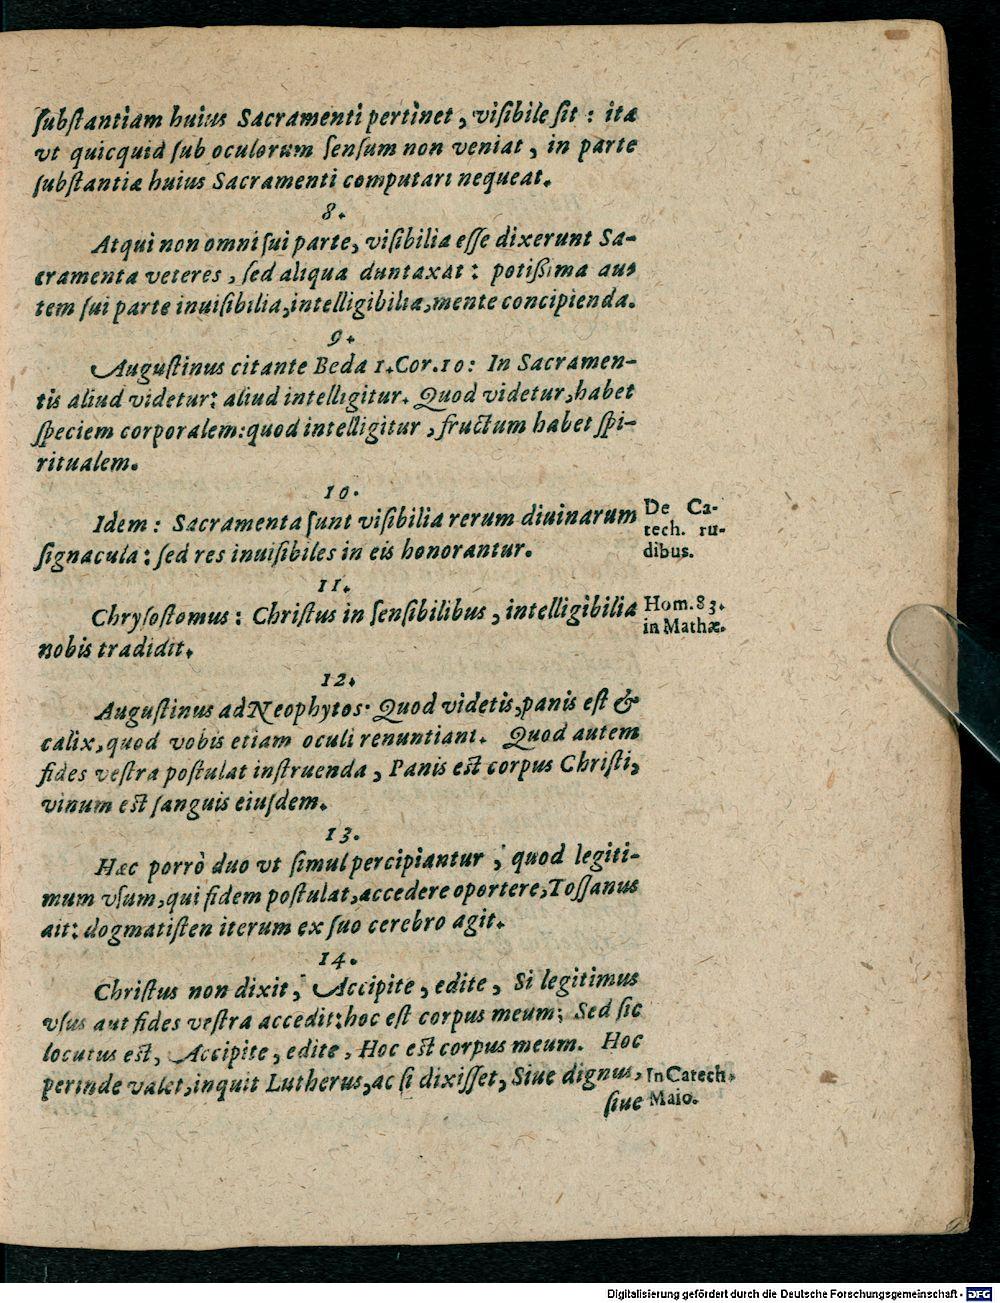 substantiam huius Sacramenti pertinet, visibile sit: ita
vt quicquid sub oculorum sensum non veniat, in parte
substantiæ huius Sacramenti computari nequeat.
8.
Atqui non omni sui parte, visibilia esse dixerunt Sa-
cramenta veteres, sed aliqua duntaxat: potißima au-
tem sui parte inuisibilia, intelligibilia, mente concipienda.
9.
Augustinus citante Beda 1. Cor. 10: In Sacramen-
tis aliud videtur: aliud intelligitur. Quod videtur, habet
speciem corporalem: quod intelligitur, fructum habet spi-
ritualem.
10.
Idem: Sacramenta sunt visibilia rerum diuinarum
signacula: sed res inuisibiles in eis honorantur.
De Ca-
tech. ru-
dibus.
11.
Chrysostomus: Christus in sensibilibus, intelligibilia
nobis tradidit.
Hom. 83.
in Mathæ.
12.
Augustinus ad Neophytos. Quod videtis, panis est &
calix, quod vobis etiam oculi renuntiant. Quod autem
fides vestra postulat instruenda, Panis est corpus Christi,
vinum est sanguis eiusdem.
13.
Hæc porrò duo vt simul percipiantur, quod legiti-
mum vsum, qui fidem postulat, accedere oportere, Tossanus
ait: dogmatisten iterum ex suo cerebro agit.
14.
Christus non dixit, Accipite, edite, Si legitimus
vsus aut fides vestra accedit: hoc est corpus meum; Sed sic
locutus est, Accipite, edite, Hoc est corpus meum. Hoc
perinde valet, inquit Lutherus, ac si dixisset, Siue dignus,
siue
In Catech.
Maio.
Digitalisierung gefördert durch die Deutsche Forschungsgemeinschaft - DFG